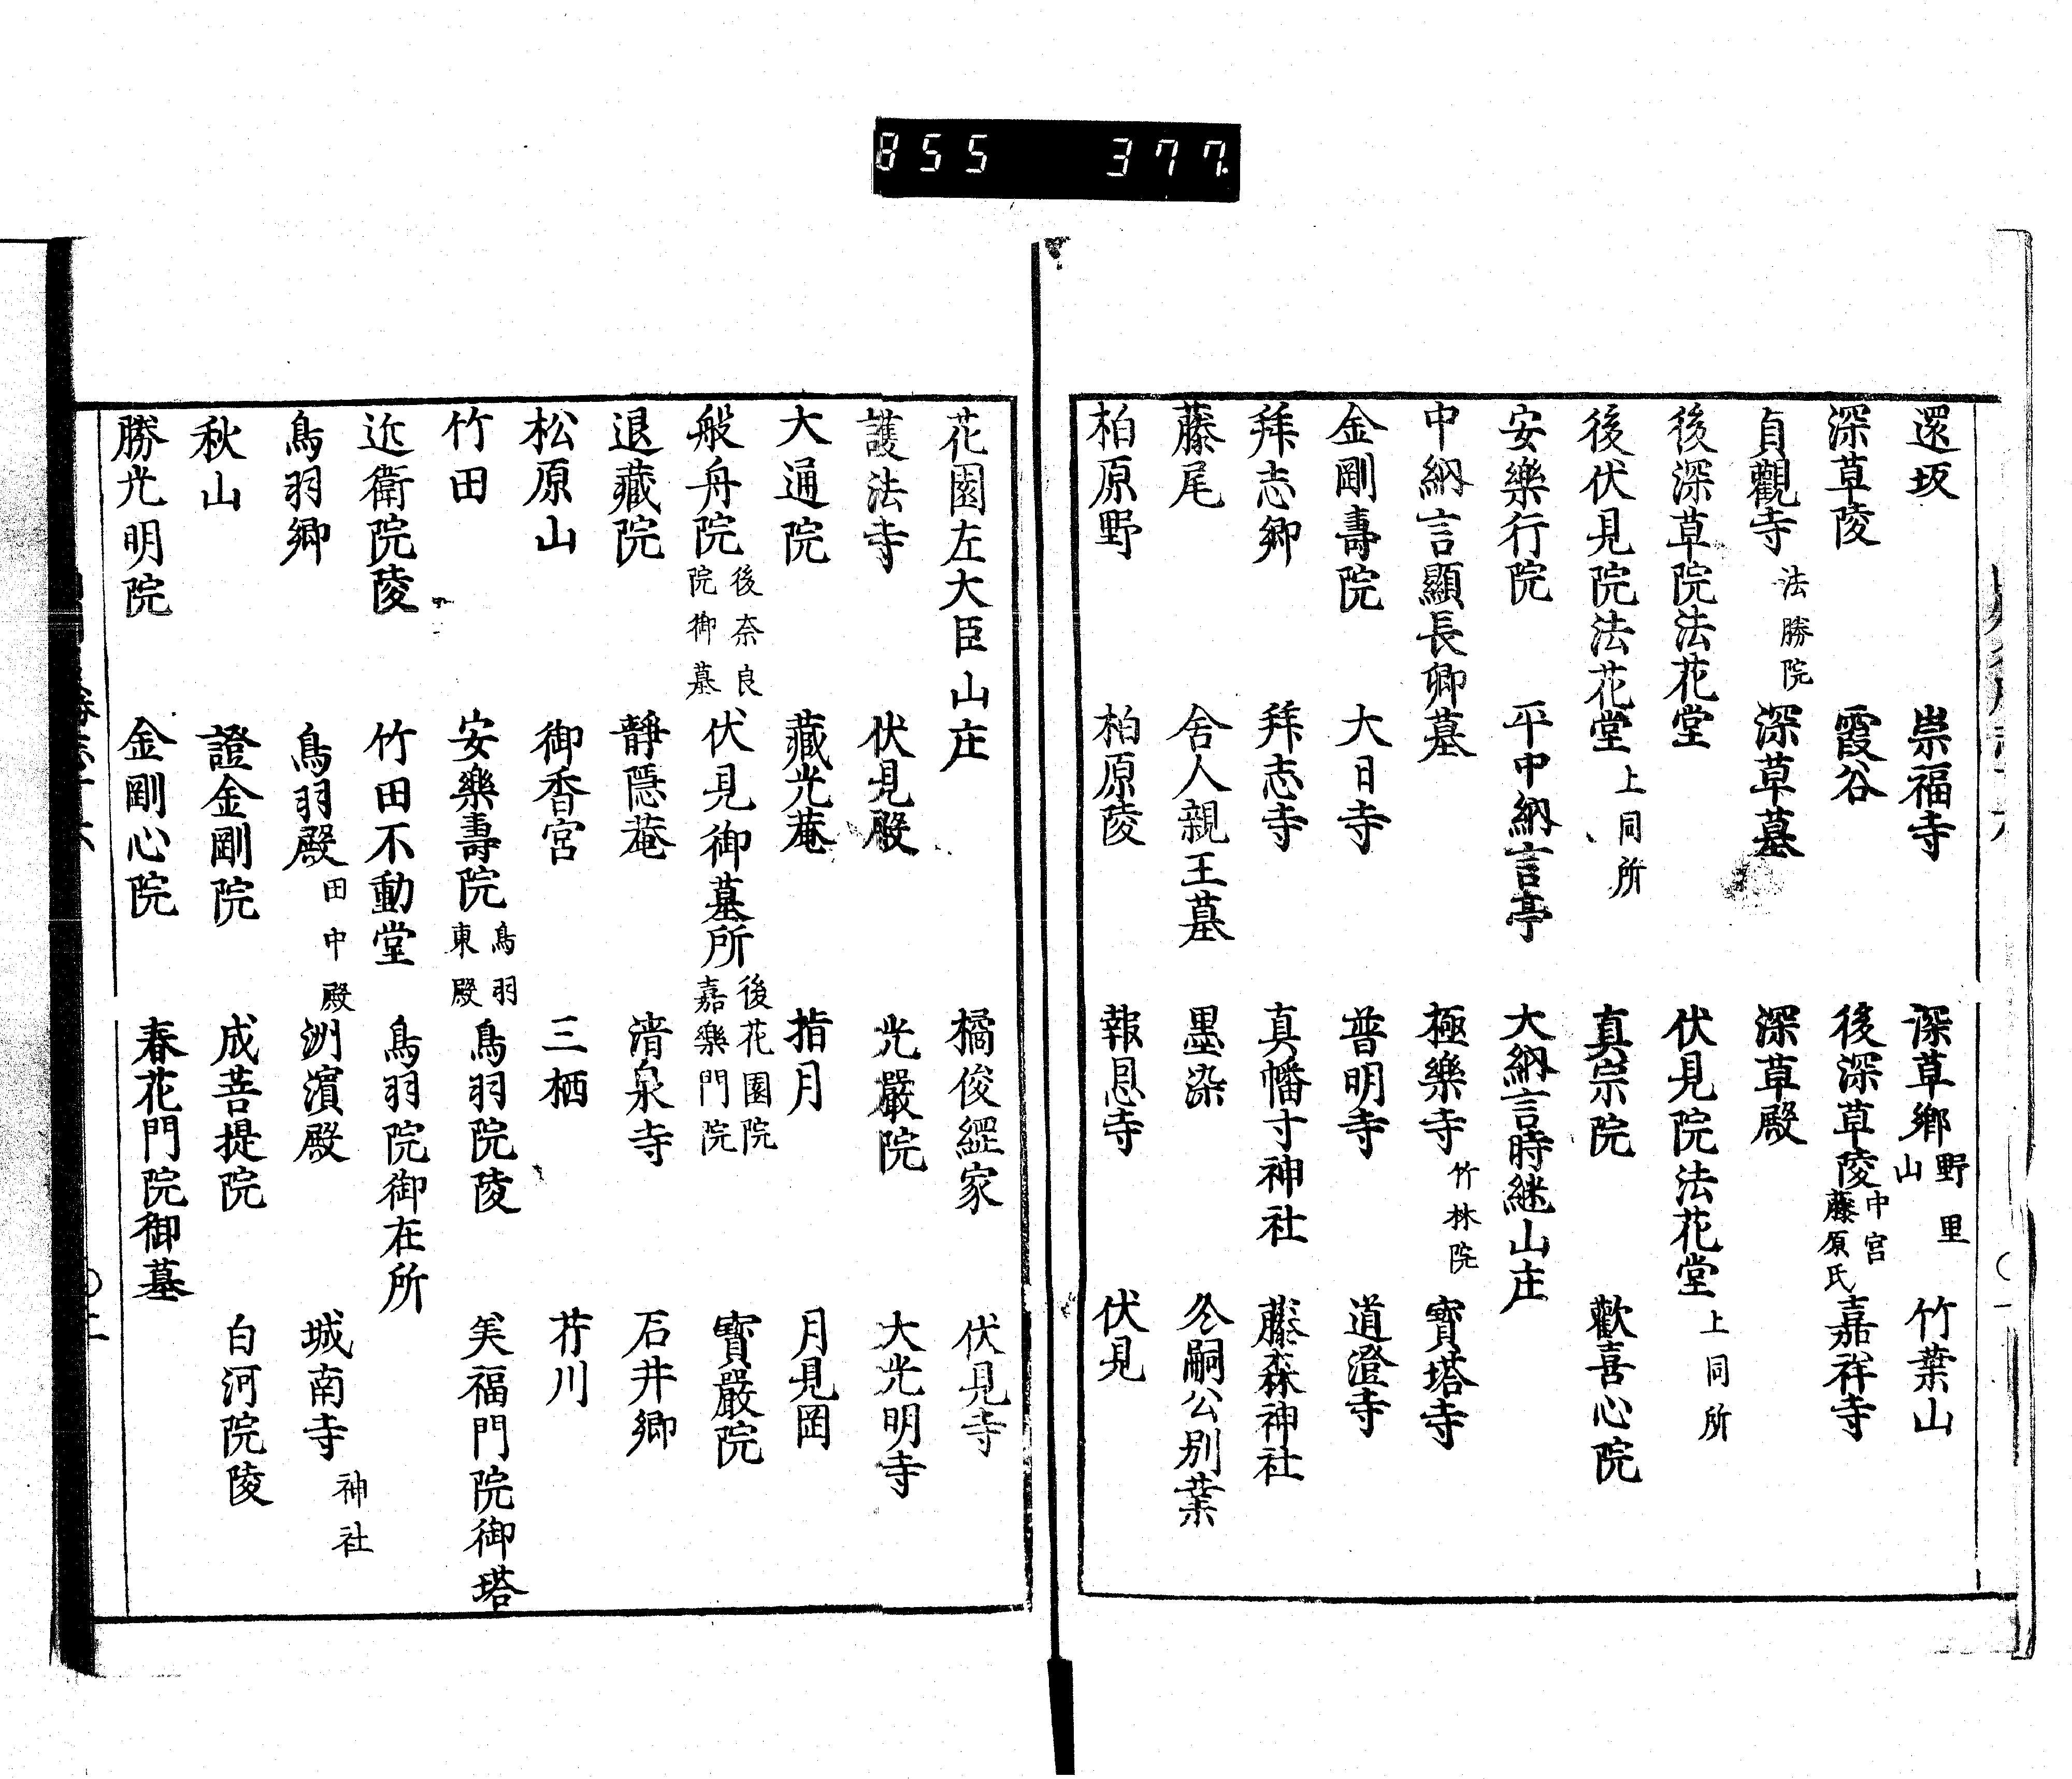 855 377
還坂 崇福寺 深草鄉 野里 山 竹葉山
深草陵 霞谷 後深草陵 中宮 藤原氏 嘉祥寺
貞觀寺 法勝院 深草墓 深草殿
後深草院法花堂 伏見院法花堂 上同所
後伏見院法花堂 上同所 真宗院 歡喜心院
安樂行院 平中納言亭 大納言時継山庄
中納言顯長卿墓 極樂寺 竹林院 寶塔寺
金剛壽院 大日寺 普明寺 道澄寺
拜志鄉 拜志寺 真幡寸神社 藤森神社
藤尾 舍人親王墓 墨染 公嗣公別業
柏原野 柏原陵 報恩寺 伏見
花園左大臣山庄 橘俊綱家 伏見寺
護法寺 伏見殿 光嚴院 大光明寺
大通院 藏光菴 指月 月見岡
般舟院 後奈良 院御墓 伏見御墓所 後花園院 嘉樂門院 寶嚴院
退藏院 靜隱菴 清泉寺 石井鄉
松原山 御香宮 三栖 芹川
竹田 安樂壽院 鳥羽 東殿 鳥羽院陵 美福門院御塔
近衛院陵 竹田不動堂 鳥羽院御在所
鳥羽鄉 鳥羽殿 田中殿 洲濱殿 城南寺 神社
秋山 證金剛院 成菩提院 白河院陵
勝光明院 金剛心院 春花門院御墓